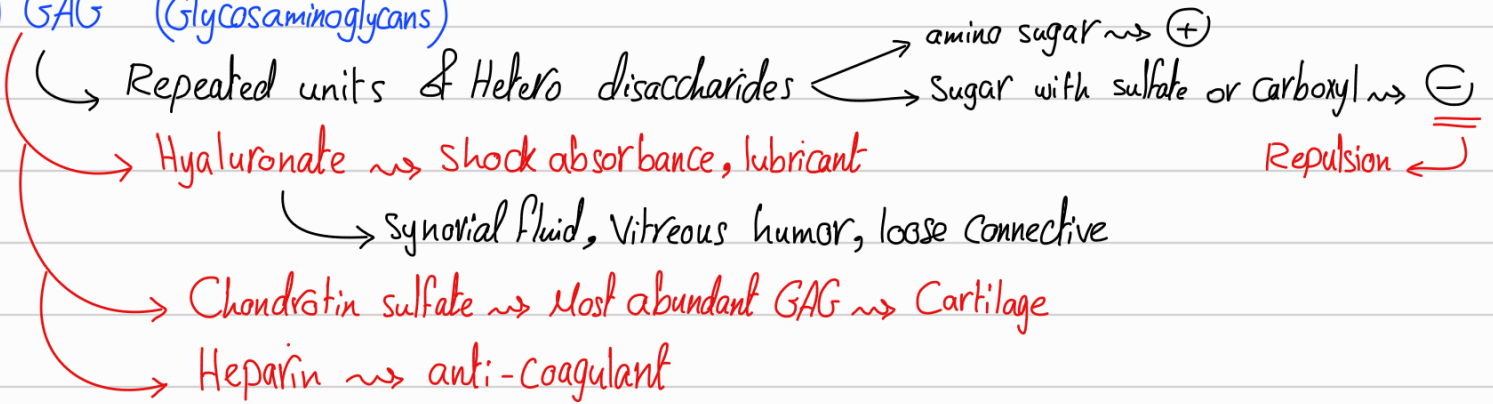 GAG (Glycosaminoglycans)
amino sugar ⇝ ⊕
Repeated units & Hetero disaccharides
Sugar with sulfate or carboxyl ⇝ ⊖
Hyaluronate ⇝ shock absorbance, lubricant
Repulsion
Synovial fluid, Vitreous humor, loose connective
Chondrotin sulfate ⇝ Most abundant GAG ⇝ Cartilage
Heparin ⇝ anti-coagulant